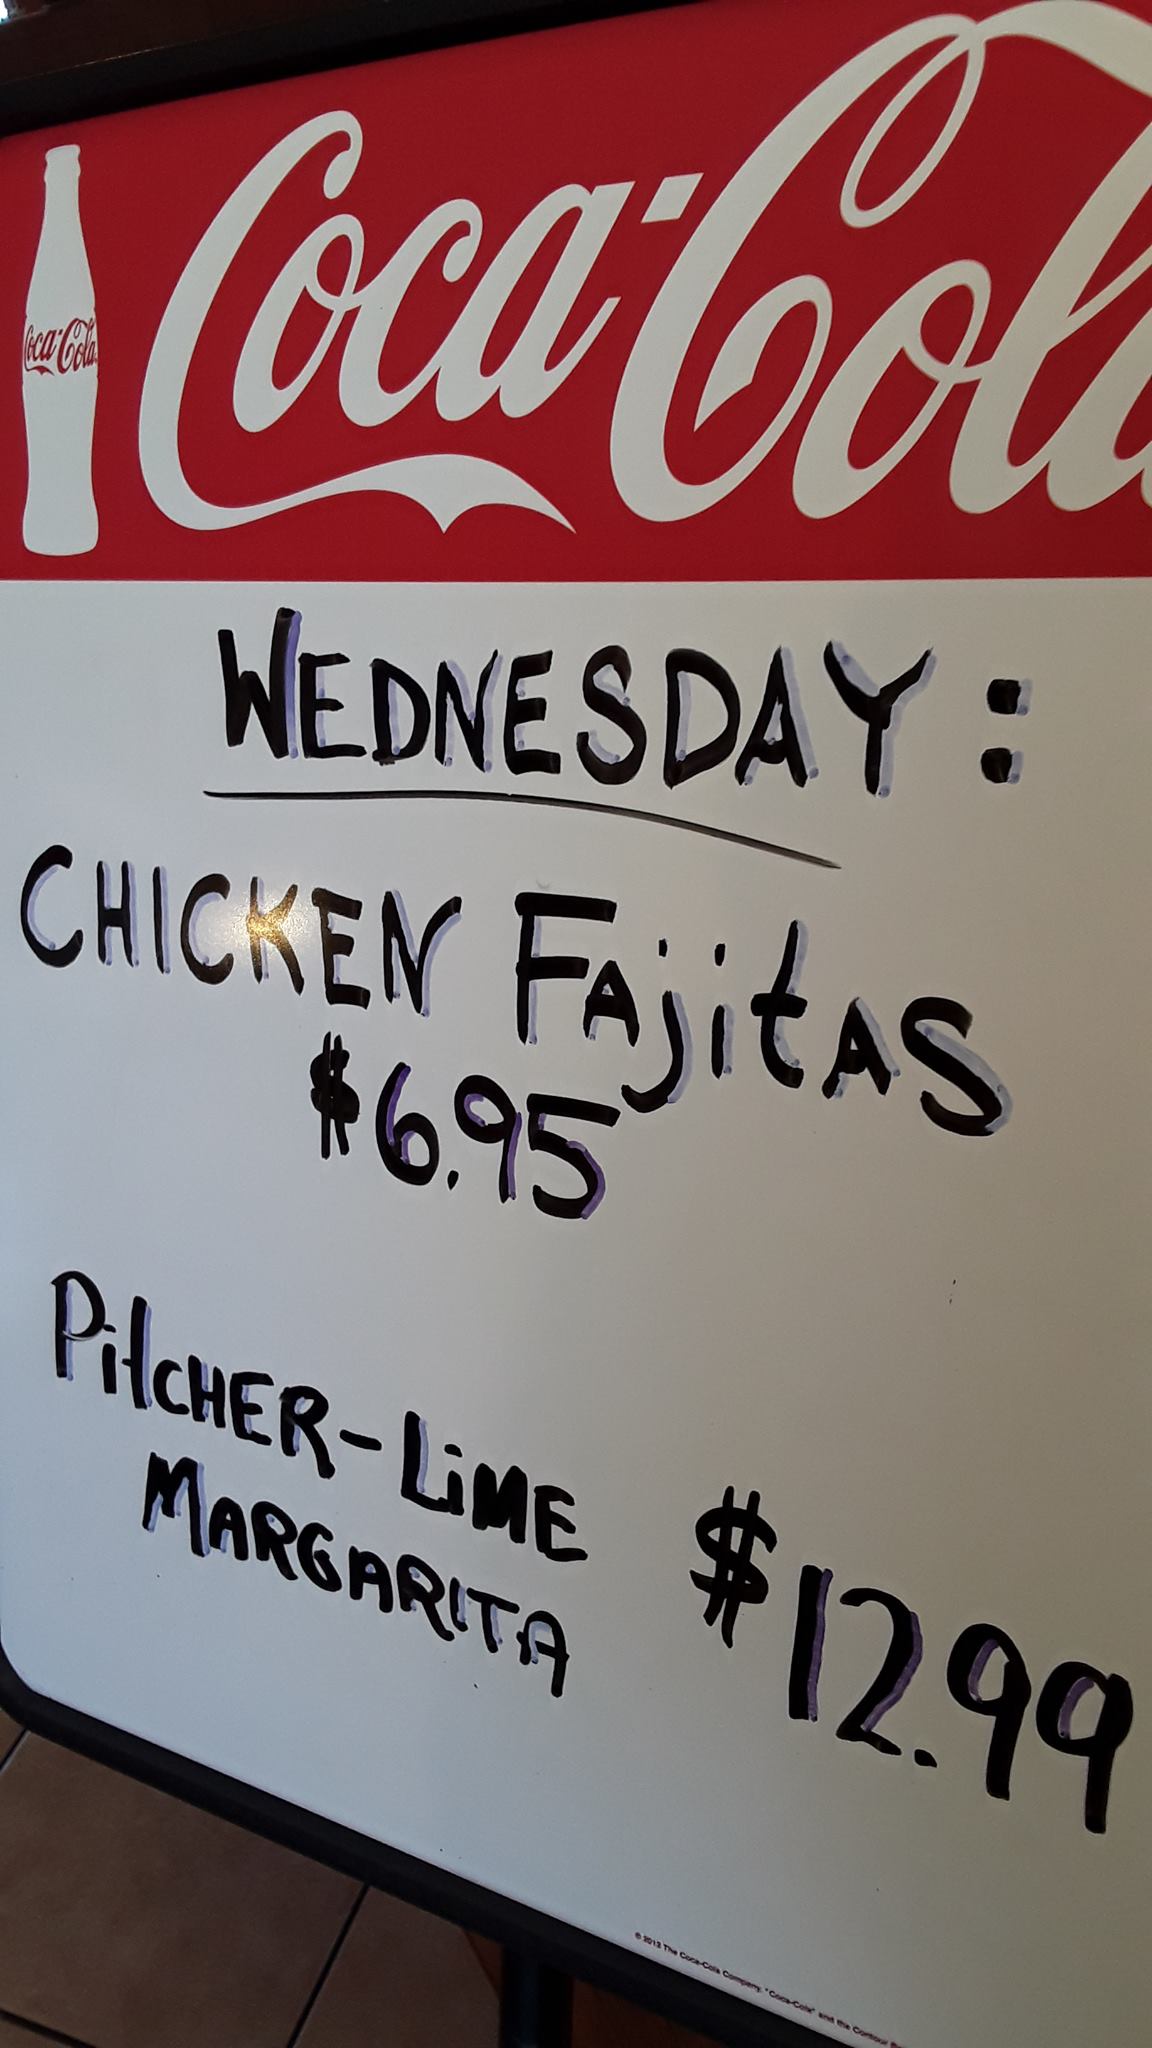 Coca-Cola
Coca-Cola
WEDNESDAY:
CHICKEN FAjitAS
$6.95
PitCHER-LiME
MARGARITA
$12.99
© 2013 The Coca-Cola Company. "Coca-Cola" and the Contour